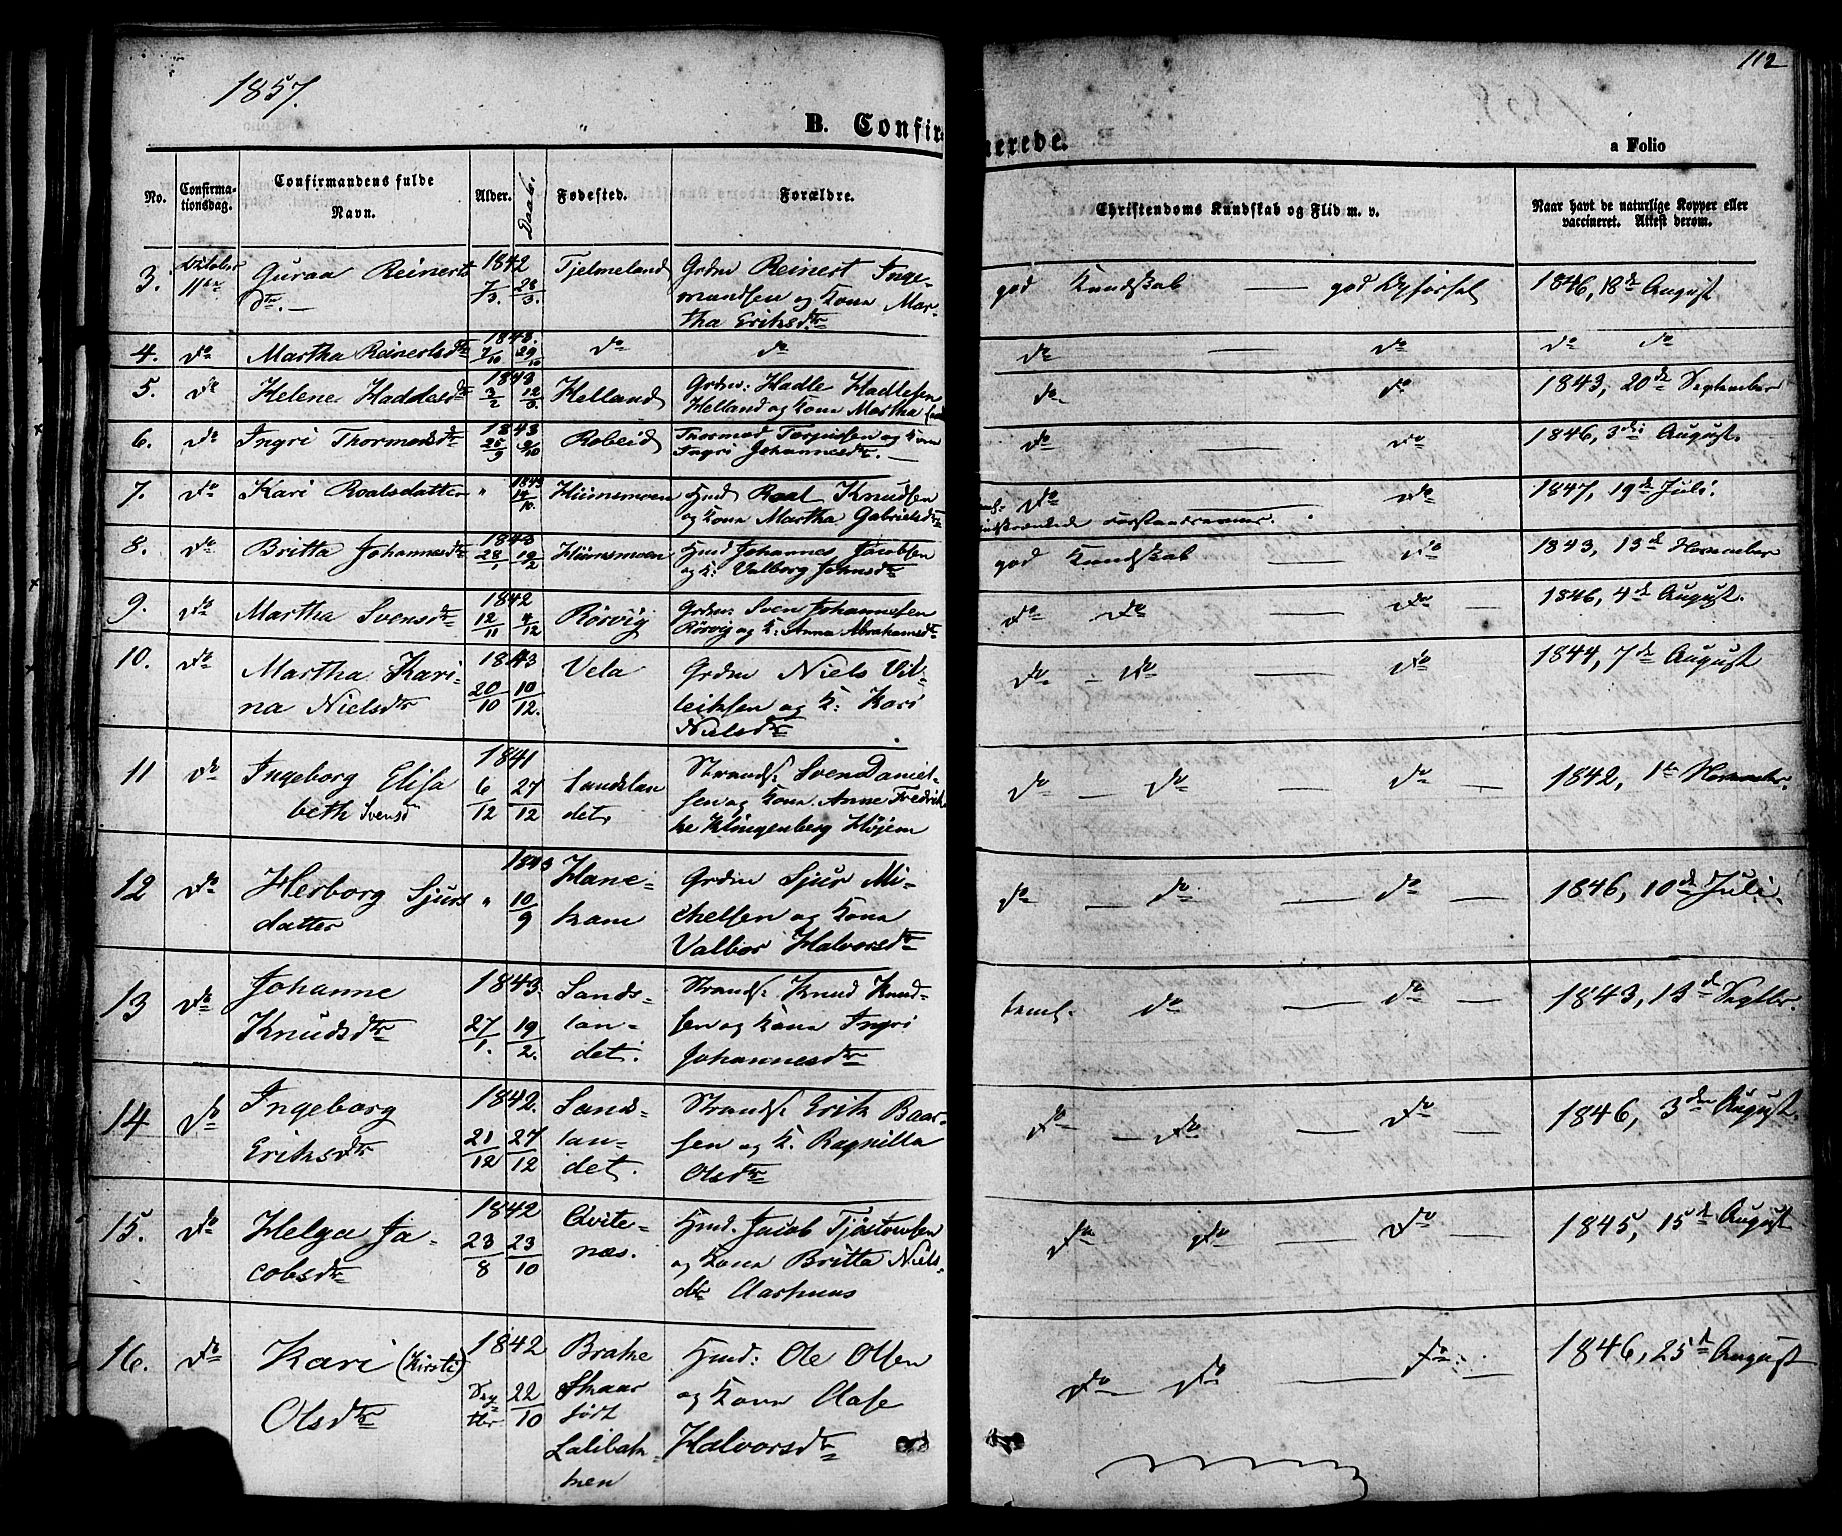 1857.
112
B. Confir
merede.
a Folio
No. Confirma-tionsdag. Confirmandens fulde Navn. Alder. Daab. Fødested. Forældre. Christendoms Kundskab og Flid m. v. Naar havt de naturlige Kopper eller vaccineret. Attest derom.
3. October 11te Guraa Reinerts dtr. 1842 7/3 28/3. Tjelmeland Grdm Reinert Inge-
mandsen og Kona Mar-
tha Eriksdtr god Kundskab — god Opførsel 1846, 18de August
4. do Martha Reinertsdtr 1843. 7/10 29/10 do do do — do do do
5. do Helene Haddlesdtr 1843 3/2 12/3. Helland Grdm: Hadle Hadlesen
Helland og Kona Martha do do 1843, 20de September
6. do Ingri Thormodsdtr 1843 25/9 9/10 Robeid Thormod Torgiusen og Kona
Ingri Johannesdtr. — do do 1846, 3die August.
7. do Kari Roalsdatter " 1843 14/10. Hiimsmoen Hmd Roal Knudsen
og Kona Martha Gabrielsdtr do do
indskrænkede Forstandsevner. 1847, 19de Juli.
8. do Britta Johannesdtr 1843 28/1 19/2 Hiimsmoen Hmd Johannes Jacobsen
og K: Valborg Johnsdtr god Kundskab — do 1843, 13de November
9. do Martha Svensdtr 1842 12/11 4/12 Rörvig Grdm: Sven Johannesen
Rörvig og K: Anna Abrahamsdtr do do — do — 1846, 4de August.
10. do Martha Kari-
na Nielsdtr 1843 20/10 10/12. Vela Grdm Niels Vil-
leiksen og K: Kari
Nielsdtr do — do — do 1844, 7de August
11 do Ingeborg Elisa
beth Svensd 1841 6/12 27/12 Sandslan
det Strands: Sven Daniel-
sen og Kona Anne Fredrik-
ke Klingenberg Höjem do — do — do — 1842, 1te November.
12 do Herborg Sjurs
datter " 1843 10/9 Hane-
kam Grdm Sjur Mi-
chelsen og Kona
Valbor Halvorsdtr do — do — do — 1846, 10de Juli
13 do Johanne
Knudsdtr 1843. 27/1. 19/2. Sands-
lan-
det. Strands: Knud Knud-
sen og Kona Ingri
Johannesdtr do — do — 1843, 13de Septbr.
14 do Ingeborg
Eriksdtr 1842. 21/12 27/12 Sands-
lan-
det. Strands: Erik Baar-
sen og K. Ragnilla
Olsdtr do — do — do — 1846, 3den August.
15. do Helga Ja-
cobsdtr 1842 23/8 23/10 Qvite-
næs. Hmd. Jacob Tjøstovsen
og Kona Britta Niels-
dtr Aarhuus do do — do — 1845, 15de August
16. do Kari (Kirsti)
Olsdtr 1842 Sep-
tbr 22/10 Brake
Skaar
født
Lalibak-
ken Hmd: Ole Olsen
og Kona Aase
Halvorsdtr do — do — do — 1846, 25de August